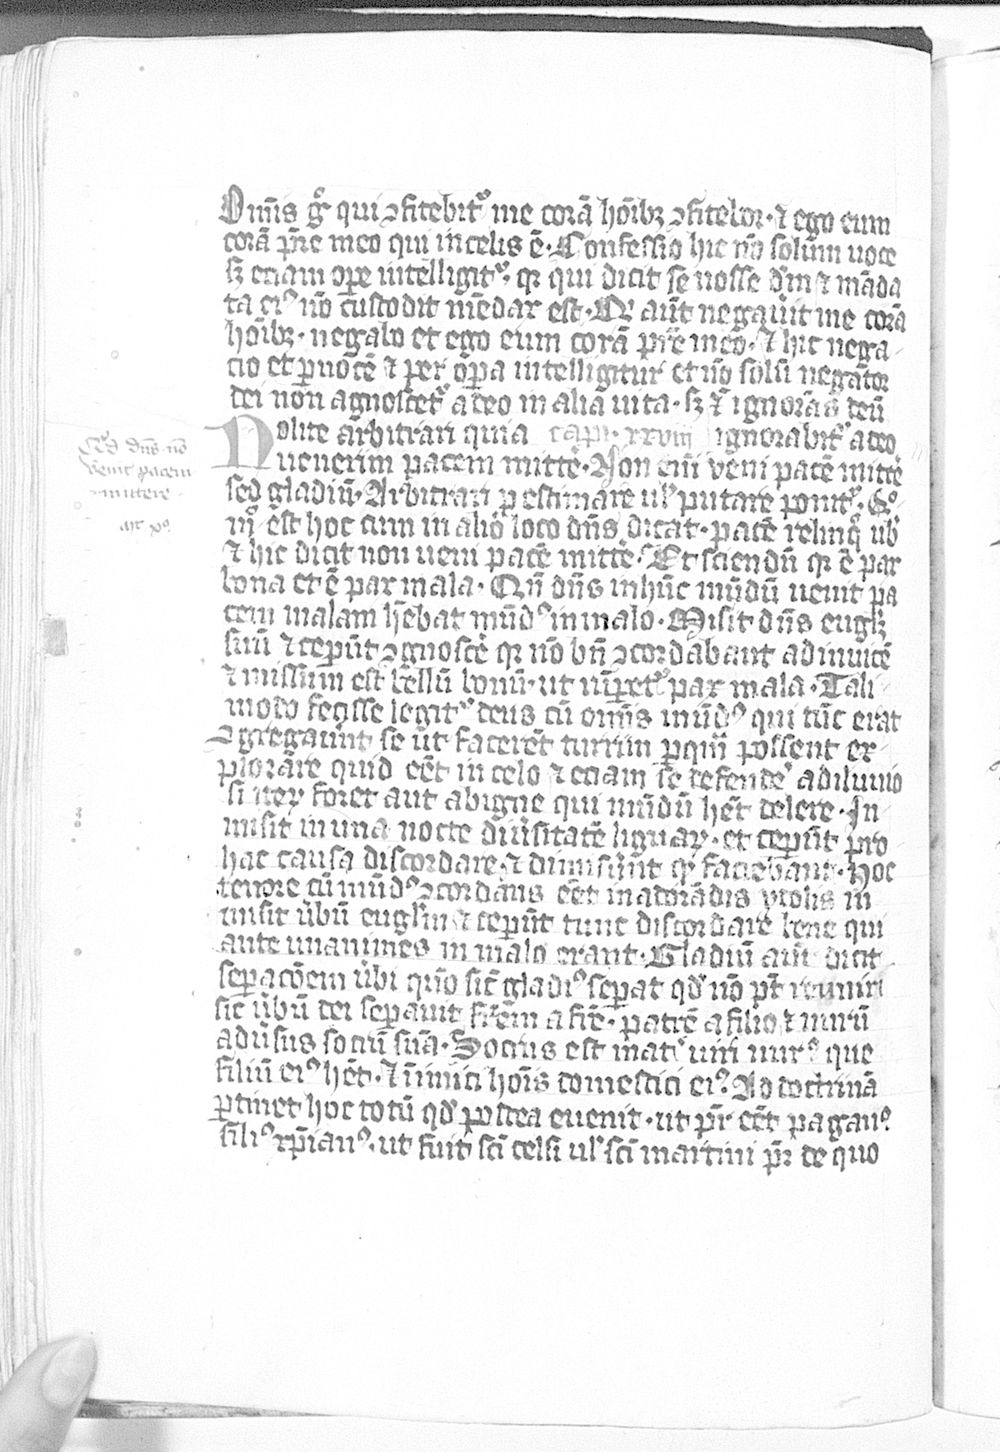 Om̄is gͦ qui ꝯfitebitᷣ me corā hōībꝫ ꝯfitebor · ⁊ ego eum
corā pr̄e meo qui in celis ē · Confessio hic nō solum uoce
sꝫ eciam oꝑe intelligitᷣ · qꝛ qui dicit se nosse dm̄ ⁊ māda
ta eiꝰ nō custodit mēdax est · Qi aūt negauit me corā
hōībꝫ · negabo et ego eum corā pr̄e meo · ⁊ hic nega
cio et ꝑ uocē ⁊ per oꝑa intelligitur et nō solū negator
dei non agnoscetᷣ a deo in alia uita · sꝫ ⁊ ignorās deū
Nolite arbitrari quia capi · xxviii ignorabitᷣ a deo
uenerim pacem mittē · Non em̄ veni pacē mittē
sed gladiū · Arbitrari ꝑ estimare ul̄ putare ponitᷣ ·
est hoc cum in alio loco dn̄s dicat · pacē relinqͦ uob
⁊ hic dicit non ueni pacē mittē · Et sciendū qꝛ ē pax
bona et ē pax mala · Qn̄ dn̄s in hūc mūdū uenit pa
cem malam hēbat mūdꝰ in malo · Misit dn̄s euḡlꝫ
suū ⁊ ceperūt ꝯgnoscē qꝛ nō bn̄ ꝯcordabant adinuicē
⁊ missum est bellū bonū · ut rūperetᷣ pax mala · Tali
modo fecisse legitᷣ deus cū om̄is mūdꝰ qui tūc erat
ꝯgregauūt se ūt facerēt turrim ꝑ quā possent ex
plorare quid eēt in celo ⁊ eciam se defendē a diluuio
si iteꝝ foret aut ab igne qui mūdū hēt delere · In
misit in una nocte diūsitatē liguaꝝ · et ceperūt pro
hac causa discordare · ⁊ dimiserūt qᷓ faciebant · Hoc
tempore cū mūdꝰ ꝯcordans eēt in adorādis ydolis in
misit ūbū euḡlīi ⁊ ceperūt tunc discordare bene qui
ante unanimes in malo erant · Gladiū aūt dicit
seꝑacōem ūbi quō sic̄ gladiꝰ seꝑat qd̄ nō pt̄ reuniri
sic ūbū dei seꝑauit fr̄em a fr̄e · patrē a filio ⁊ nurū
adūsus socrū suā · Socrus est matᷣ uiri nurꝰ que
filiū eiꝰ hēt · ⁊ īimici hoīs domestici eiꝰ · Ad doctrinā
ꝑtinet hoc totū qd̄ postea euenit · ut pr̄ eēt paganꝰ
filiꝰ xp̄ianꝰ · ut fuit sc̄i celsi ul̄ sc̄i martini pr̄ de quo
Qd dn̄s nō
venit pacem
mittere